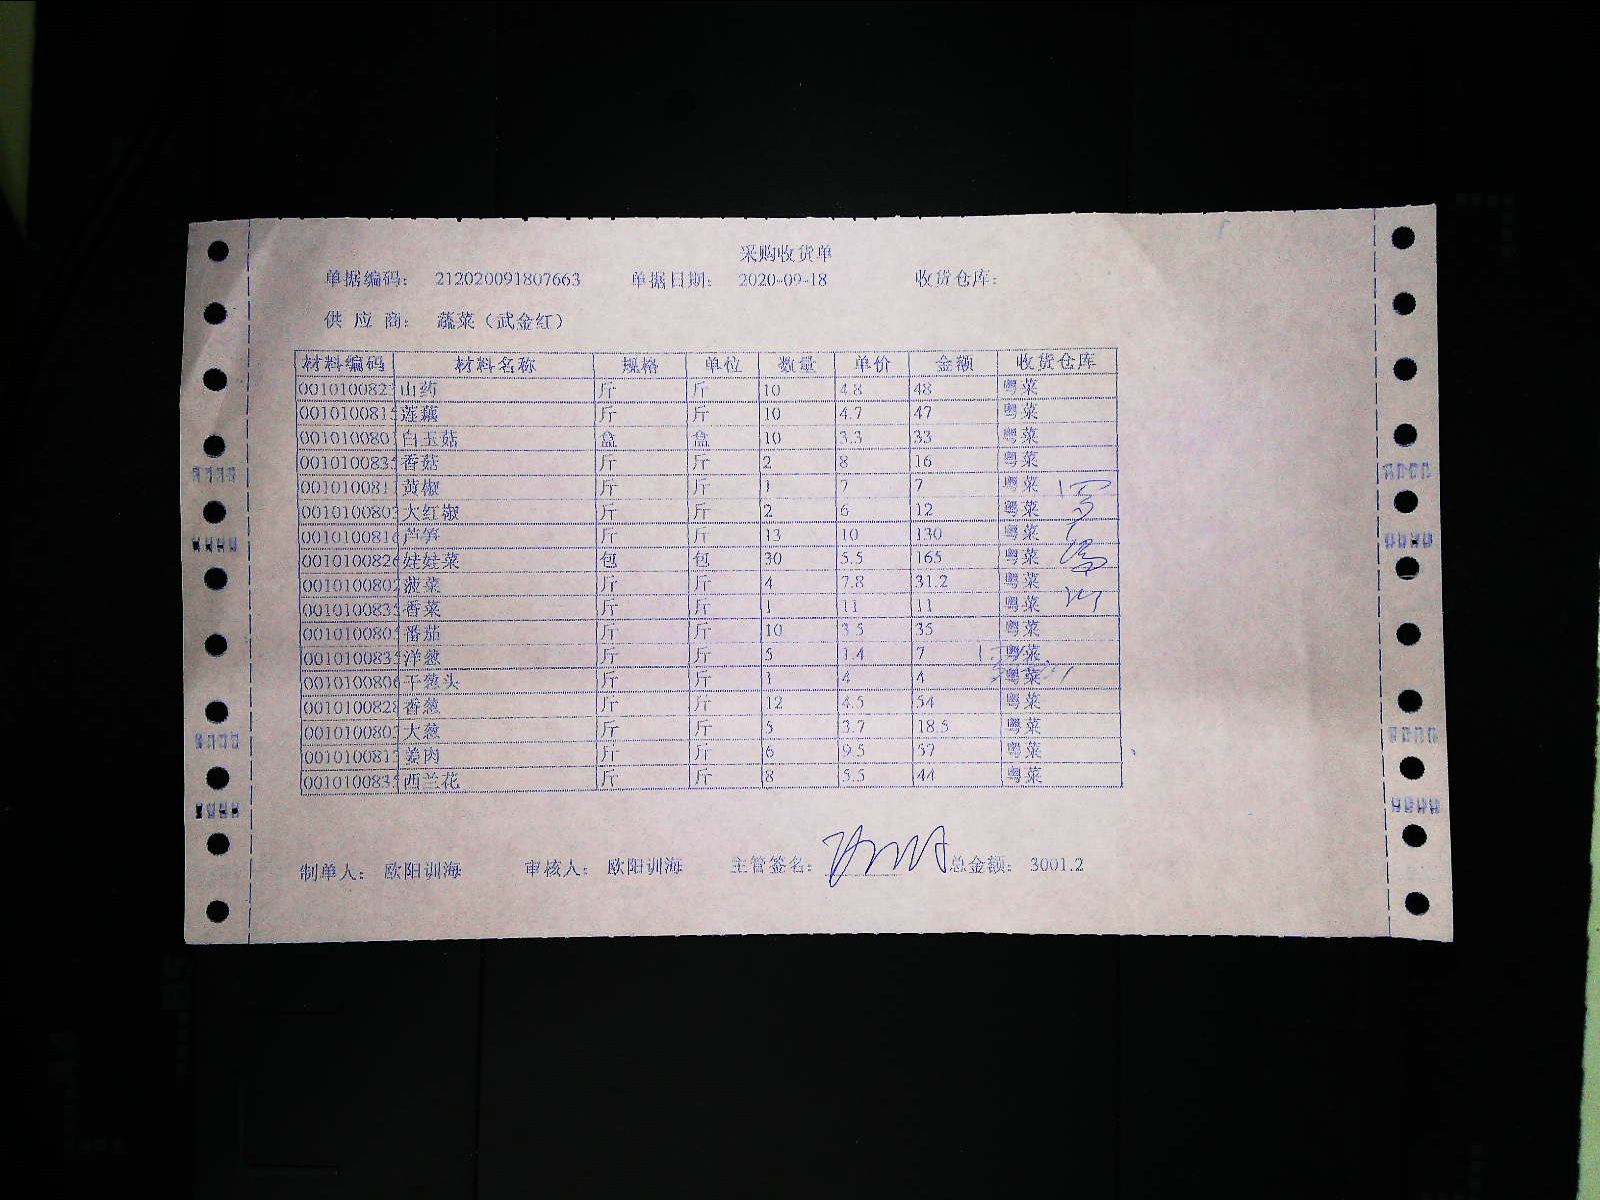 采购收货单
单据编码: 212020091807663 单据日期: 2020-09-18 收货仓库:
供 应 商: 蔬菜（武金红）
材料编码 材料名称 规格 单位 数量 单价 金额 收货仓库
001010082 山药 斤 斤 10 4.8 48 粤菜
001010081 莲藕 斤 斤 10 4.7 47 粤菜
001010080 白玉菇 盒 盒 10 3.3 33 粤菜
001010083 香菇 斤 斤 2 8 16 粤菜
001010081 黄椒 斤 斤 1 7 7 粤菜
001010080 大红椒 斤 斤 2 6 12 粤菜
001010081 芦笋 斤 斤 13 10 130 粤菜
001010082 娃娃菜 包 包 30 5.5 165 粤菜
001010080 菠菜 斤 斤 4 7.8 31.2 粤菜
001010083 香菜 斤 斤 1 11 11 粤菜
001010080 番茄 斤 斤 10 3.5 35 粤菜
001010083 洋葱 斤 斤 5 1.4 7 粤菜
001010080 干葱头 斤 斤 1 4 4 粤菜
001010082 香葱 斤 斤 12 4.5 54 粤菜
001010080 大葱 斤 斤 5 3.7 18.5 粤菜
001010081 姜肉 斤 斤 6 9.5 57 粤菜
001010083 西兰花 斤 斤 8 5.5 44 粤菜
制单人: 欧阳训海 审核人: 欧阳训海 主管签名: 总金额: 3001.2